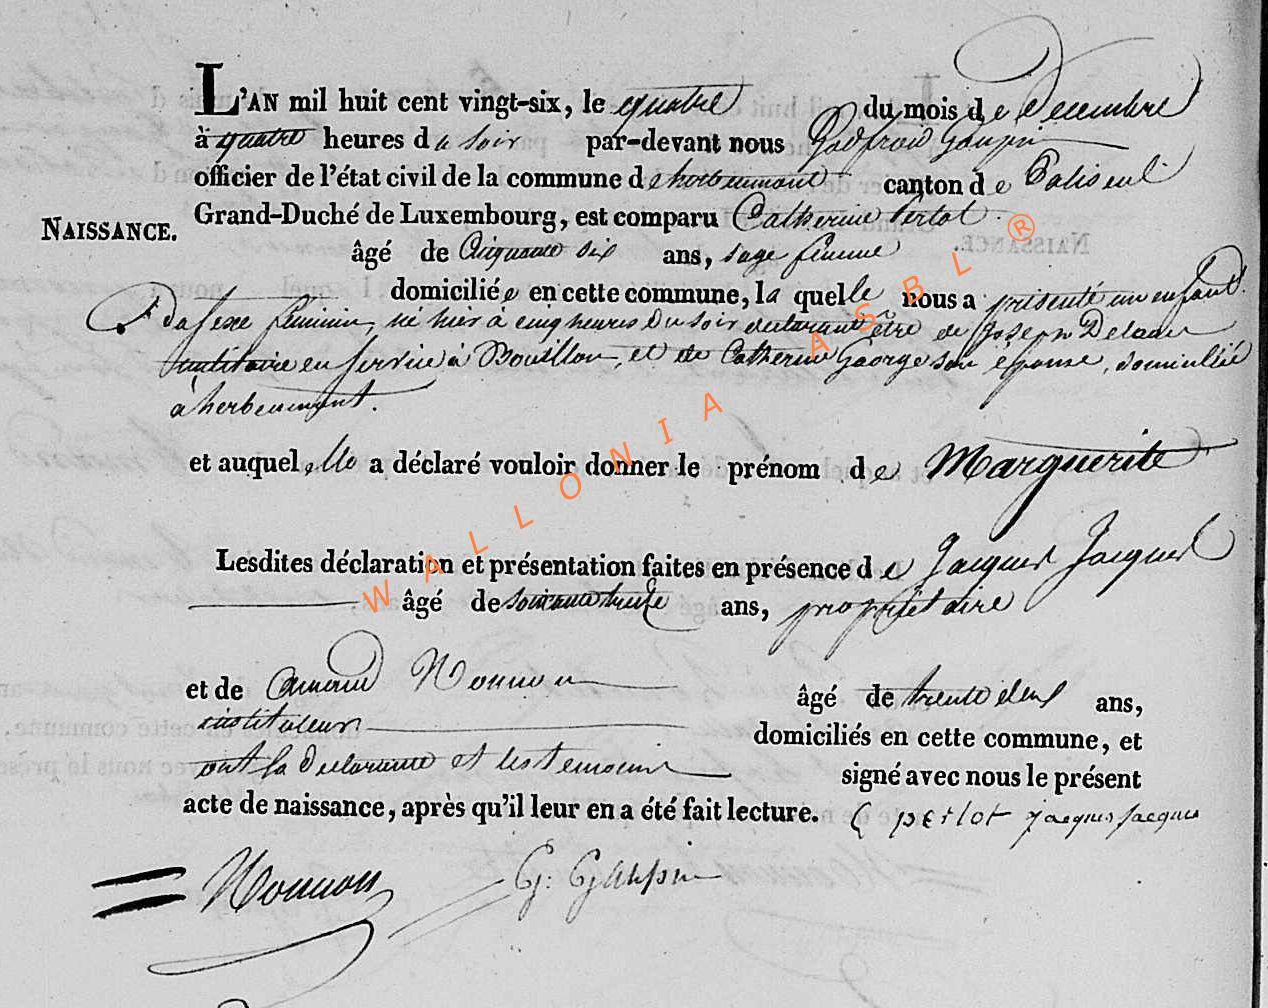 L'AN mil huit cent vingt-six, le quatre du mois de Decembre
à quatre heures du soir par-devant nous Godfroid Goupin
officier de l'état civil de la commune d'herbeumont canton de Paliseul
Grand-Duché de Luxembourg, est comparu Catherine Perlot
NAISSANCE.
âgé de Cinquante six ans, sage femme
domiciliée en cette commune, laquelle nous a présenté un enfant
du sexe féminin, né hier à cinq heures du soir declarant être de Joseph
militaire en service à Bouillon, et de Catherine George son épouse, domiciliée
à herbeumont.
et auquel elle a déclaré vouloir donner le prénom de Marguerite
Lesdites déclaration et présentation faites en présence de Jacques Jacques
âgé de soixante treize ans, propriétaire
et de Nonnon âgé de trente deux ans,
instituteur domiciliés en cette commune, et
ont la declarante et les temoins signé avec nous le présent
acte de naissance, après qu'il leur en a été fait lecture. C perlot jacques jacques
Nonnon G: Goupin
WALLONIA ASBL ®